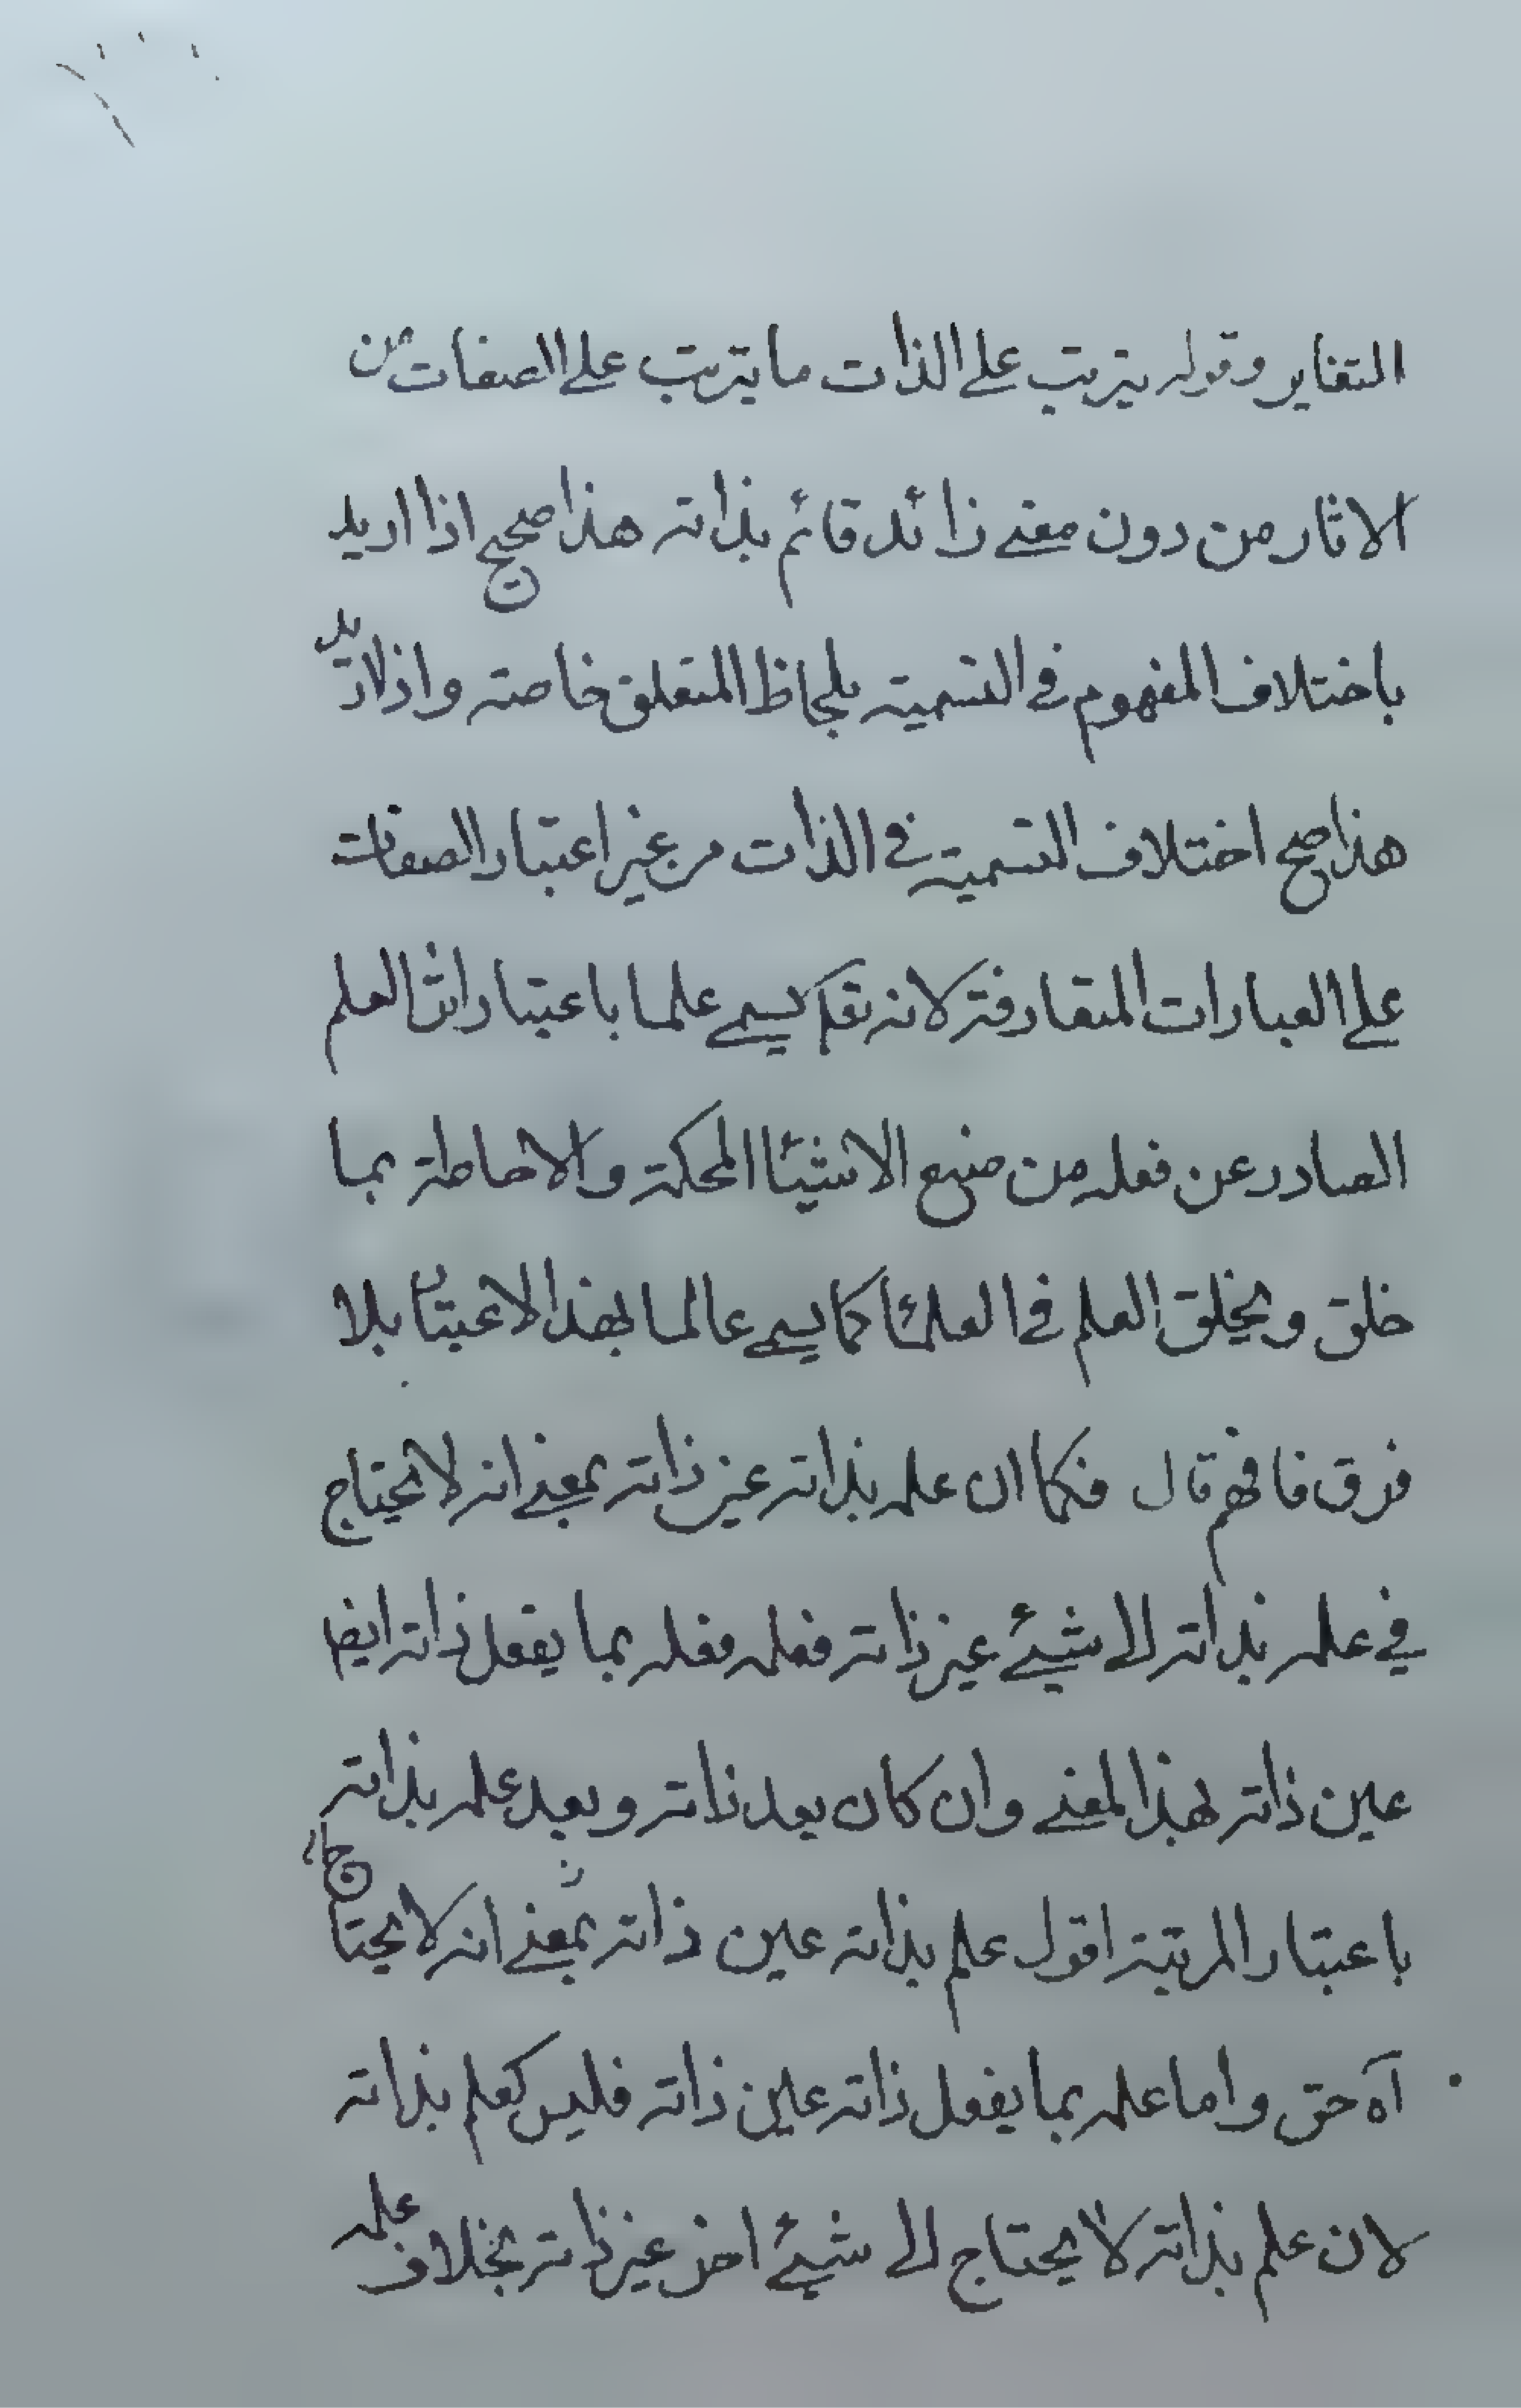 التغاير وقوله يترتب على الذات ما يترتب على الصفات من
الاثار من دون معنى زائد قائم بذاته هذا صحيح اذا اريد
باختلاف المفهوم في التسمية بلحاظ المتعلق خاصة واذا اريد
هذا صح اختلاف التسمية في الذات من غير اعتبار الصفات
على العبارات المتعارفة لانه تعالى يسمى علما باعتبار اثر العلم
الصادر عن فعله من صنع الاشياء المحكمة والاحاطة بما
خلق ويخلق العلم في العلماء كما يسمى عالما بهذا الاعتبار بلا
فرق فافهم قال فكما ان علمه بذاته عين ذاته بمعنى انه لا يحتاج
في علمه بذاته الى شيئ غير ذاته فعلمه بما يفعل ذاته ايضا
عين ذاته لهذا المعنى وان كان بعد ذاته وبعد علمه بذاته
باعتبار المرتبة اقول علم بذاته عين ذاته بمعنى انه لا يحتاج
آه حق واما علمه بما يفعل ذاته عين ذاته فليس كعلم بذاته
لان علم بذاته لا يحتاج الى شيئ اخر غير ذاته بخلاف علمه